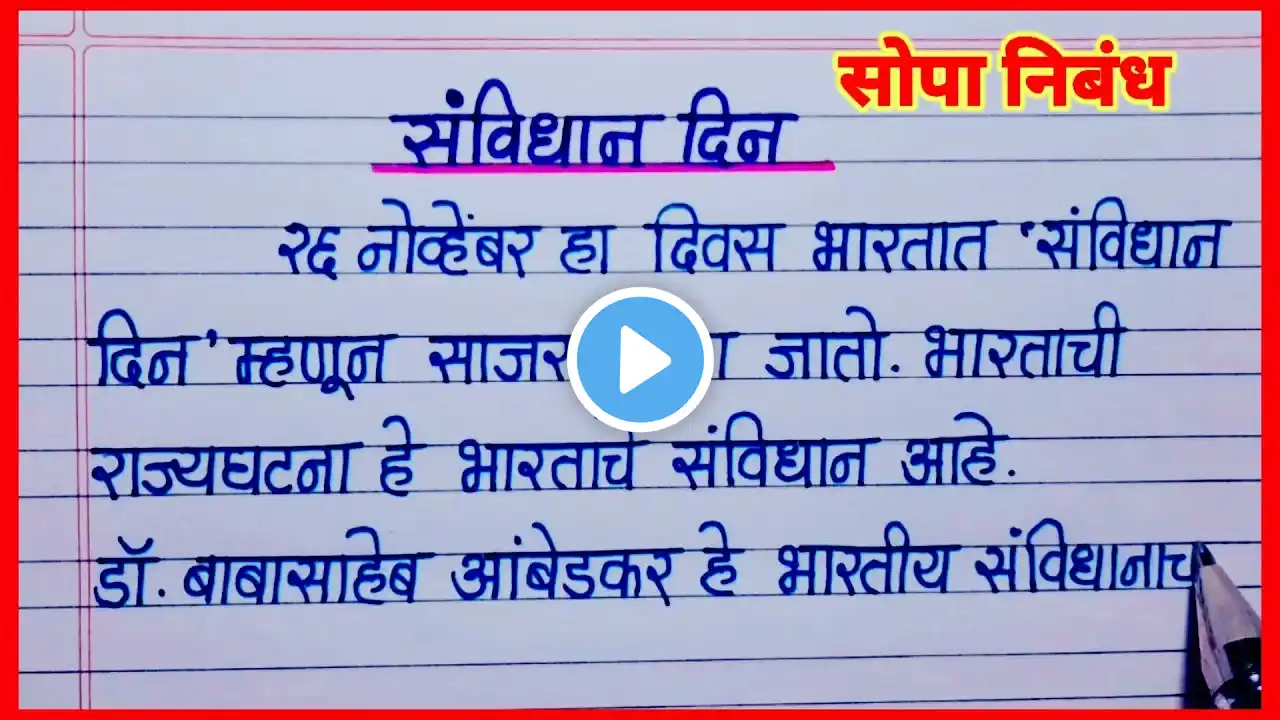 सोपा निबंध
संविधान दिन
२६ नोव्हेंबर हा दिवस भारतात 'संविधान
दिन' म्हणून जातो. भारताची
राज्यघटना हे भारताचे संविधान आहे.
डॉ. बाबासाहेब आंबेडकर हे भारतीय संविधानाच